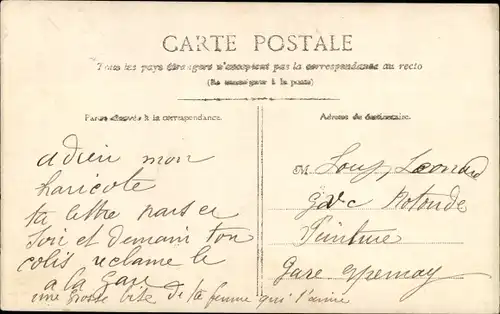 CARTE POSTALE
Tous les pays étrangers n'acceptent pas la correspondance au recto
(Se renseigner à la poste)
Partie réservée à la correspondance.
Adresse du destinataire.
adieu mon
haricote
ta lettre pars ce
soir et demain ton
colis reclame le
a la gare
une grosse bise de ta femme qui t'aime
M. Louy Leonard
Rotonde
Peinture
Gare Epernay